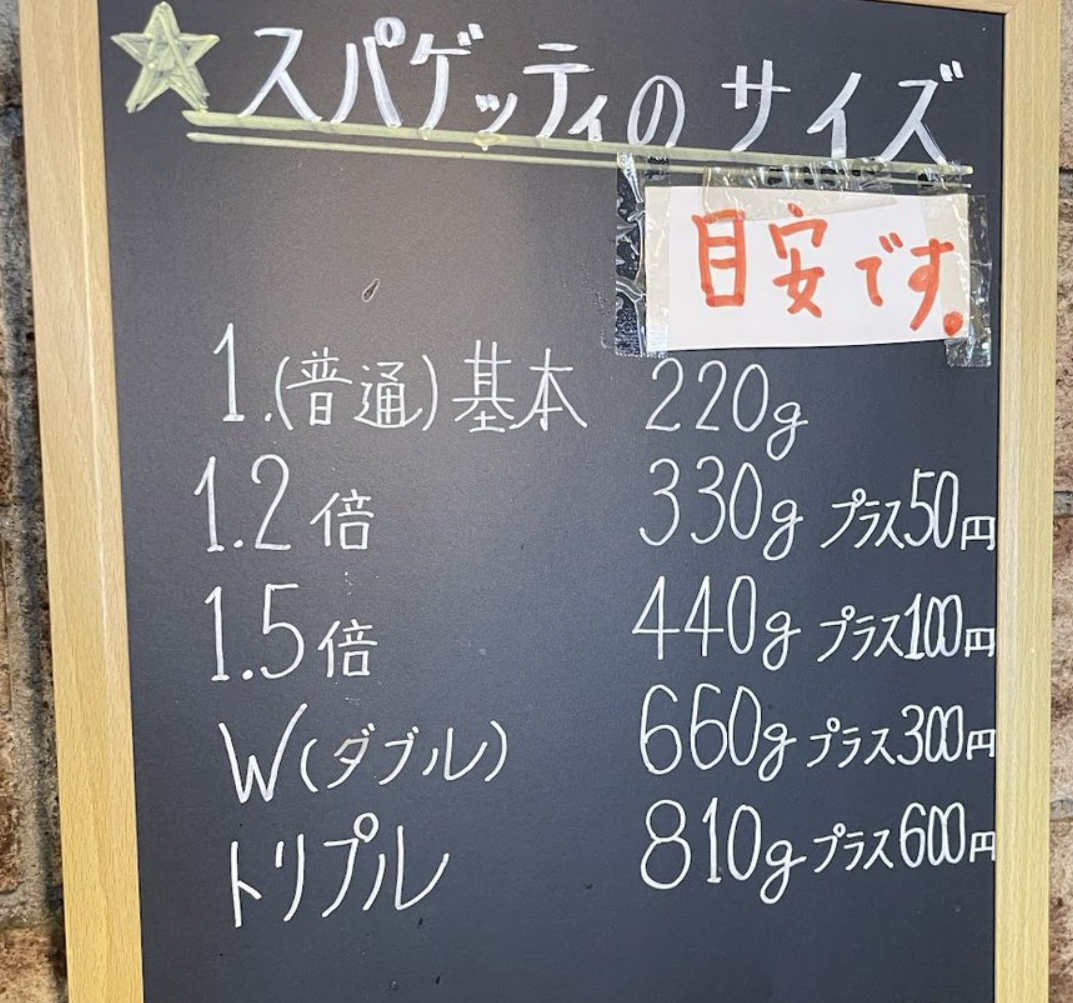 スパゲッティのサイズ
目安です.
1.(普通)基本 220g
1.2倍 330g プラス50円
1.5倍 440g プラス100円
W(ダブル) 660g プラス300円
トリプル 810g プラス600円